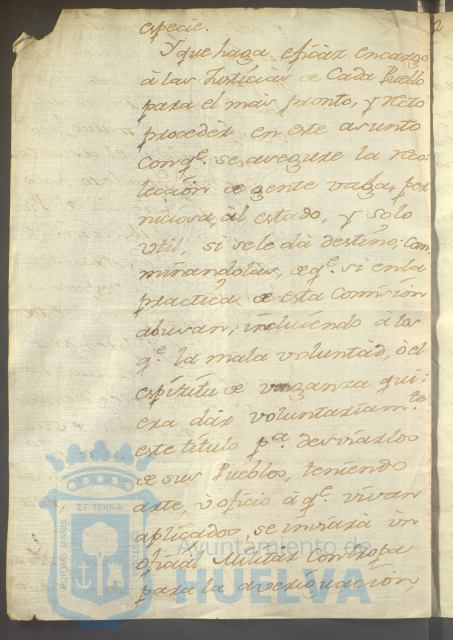 especie.
Y que haga eficàz encargo
à las Justicias de Cada Pueblo
para el màs pronto, y recto
proceder en este asunto
con q.e se asegure la reco-
leccion de gente vaga, per
niciosa, àl estado, y solo
util, si se le dà destino; con
minandolas, de q.e si en la
practica, de esta Comision
abusan, incluiendo à los
q.e la mala voluntàd, ò el
espiritu de venganza qui;
era dàr voluntariam.te
este titulo p.a desviarlos
de sus Pueblos, teniendo
arte, ù oficio à q.e vivan
aplicados, se enviarà ùn
oficial Militàr con tropa
para la averiguación,
2
ET TERRA
PORTUS MARIS
CUSTODIA
Ayuntamiento de
HUELVA